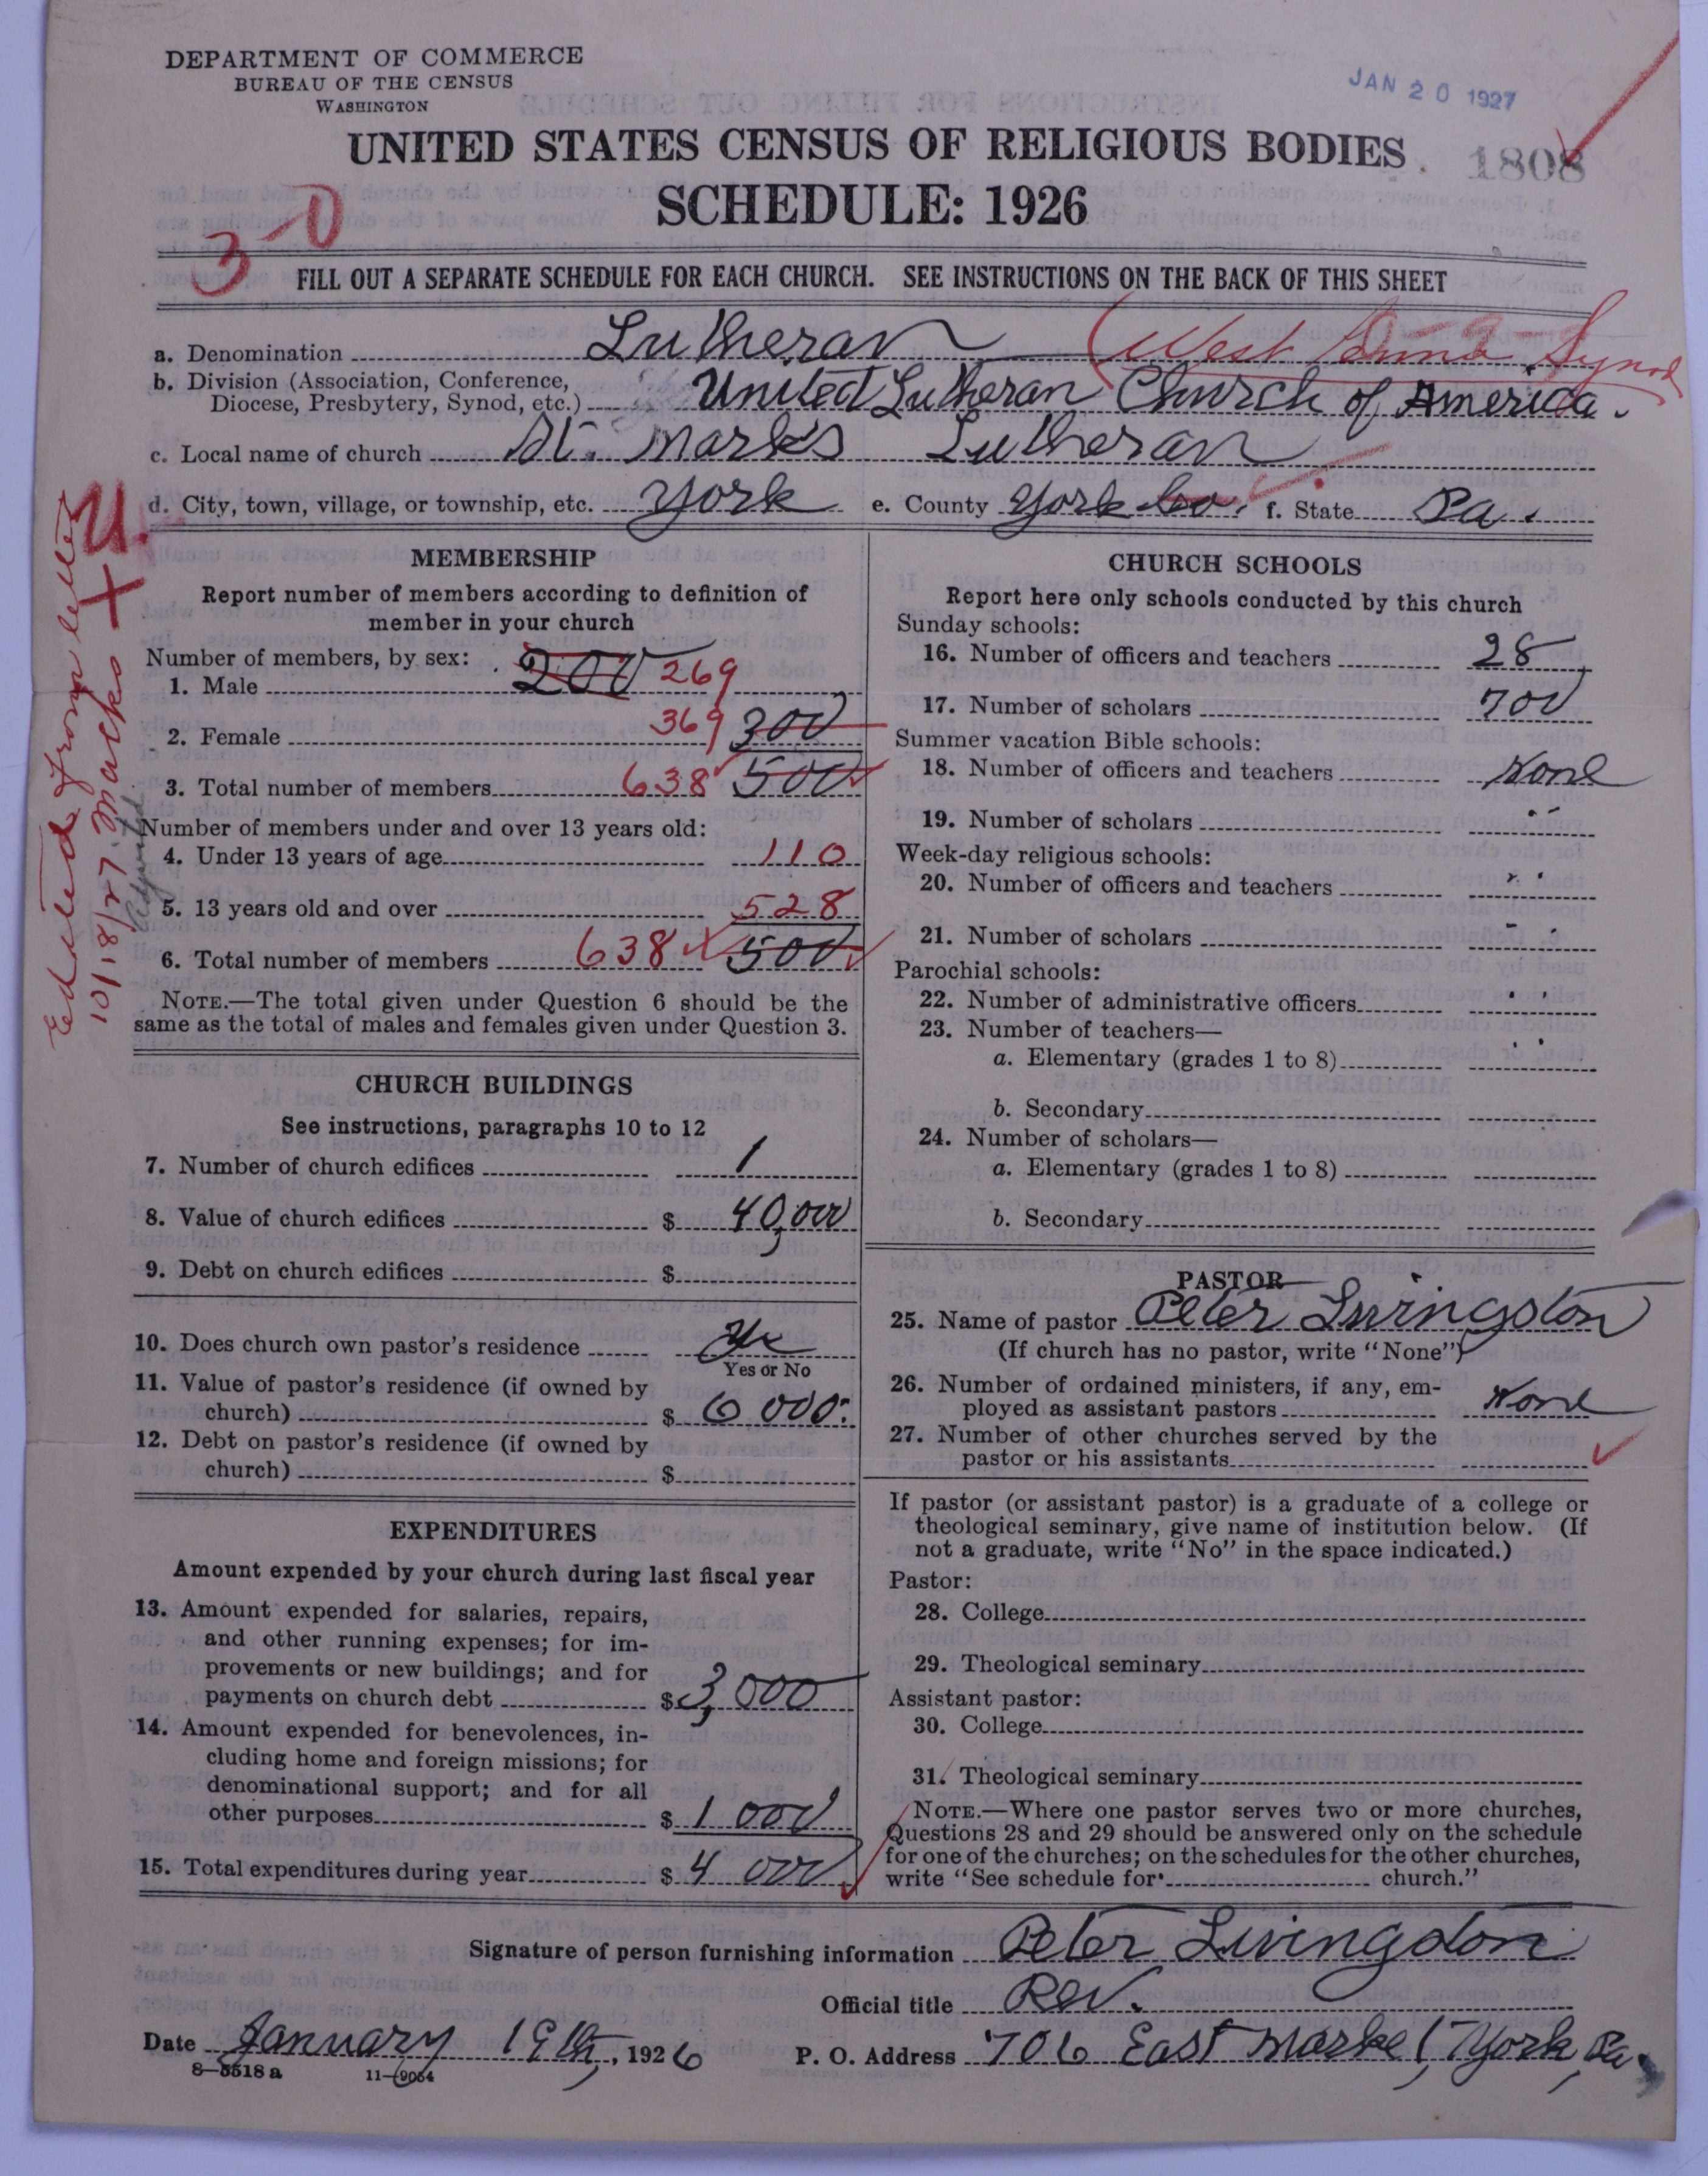 DEPARTMENT OF COMMERCE
BUREAU OF THE CENSUS
WASHINGTON
JAN 20 1927
UNITED STATES CENSUS OF RELIGIOUS BODIES
1808
SCHEDULE: 1926
3-0
FILL OUT A SEPARATE SCHEDULE FOR EACH CHURCH. SEE INSTRUCTIONS ON THE BACK OF THIS SHEET
a. Denomination Lutheran (West Penna Synod
b. Division (Association, Conference,
Diocese, Presbytery, Synod, etc.) United Lutheran Church of America.
c. Local name of church St. Marks Lutheran
d. City, town, village, or township, etc. York e. County York Co. f. State Pa.
U.
X
Edited from letter
10/18/27 Marks
Adjusted
MEMBERSHIP
Report number of members according to definition of
member in your church
Number of members, by sex:
1. Male 200 269
2. Female 369 300
3. Total number of members 638 500
Number of members under and over 13 years old:
4. Under 13 years of age 110
5. 13 years old and over 528
6. Total number of members 638 500
NOTE.—The total given under Question 6 should be the
same as the total of males and females given under Question 3.
CHURCH BUILDINGS
See instructions, paragraphs 10 to 12
7. Number of church edifices 1
8. Value of church edifices $ 40,000
9. Debt on church edifices $
10. Does church own pastor's residence Yes
Yes or No
11. Value of pastor's residence (if owned by
church) $ 6 000.
12. Debt on pastor's residence (if owned by
church) $
EXPENDITURES
Amount expended by your church during last fiscal year
13. Amount expended for salaries, repairs,
and other running expenses; for im-
provements or new buildings; and for
payments on church debt $ 3,000
14. Amount expended for benevolences, in-
cluding home and foreign missions; for
denominational support; and for all
other purposes $ 1 000
15. Total expenditures during year $ 4 000
CHURCH SCHOOLS
Report here only schools conducted by this church
Sunday schools:
16. Number of officers and teachers 28
17. Number of scholars 700
Summer vacation Bible schools:
18. Number of officers and teachers None
19. Number of scholars "
Week-day religious schools:
20. Number of officers and teachers "
21. Number of scholars "
Parochial schools:
22. Number of administrative officers "
23. Number of teachers—
a. Elementary (grades 1 to 8) "
b. Secondary
24. Number of scholars—
a. Elementary (grades 1 to 8)
b. Secondary
PASTOR
25. Name of pastor Peter Livingston
(If church has no pastor, write "None")
26. Number of ordained ministers, if any, em-
ployed as assistant pastors None
27. Number of other churches served by the
pastor or his assistants
If pastor (or assistant pastor) is a graduate of a college or
theological seminary, give name of institution below. (If
not a graduate, write "No" in the space indicated.)
Pastor:
28. College
29. Theological seminary
Assistant pastor:
30. College
31. Theological seminary
NOTE.—Where one pastor serves two or more churches,
Questions 28 and 29 should be answered only on the schedule
for one of the churches; on the schedules for the other churches,
write "See schedule for church."
Signature of person furnishing information Peter Livingston
Official title Rev.
Date January 19th, 1926 P. O. Address 706 East Market, York, Pa.
8-5518 a 11-9054